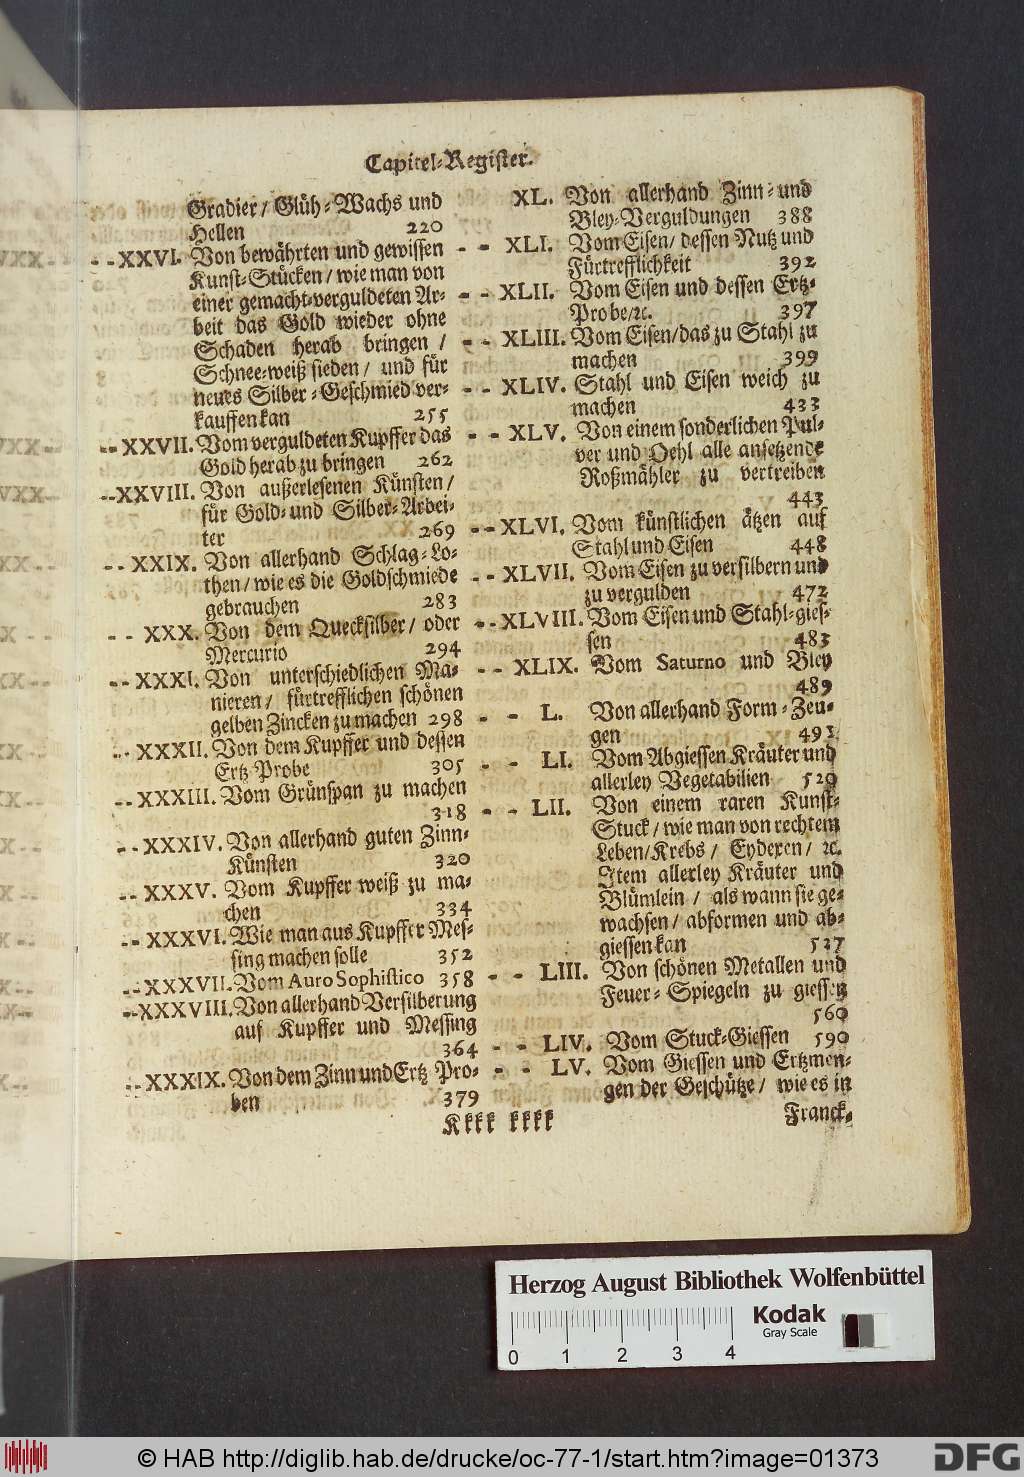 Capitel-Register.
Gradier/ Glüh-Wachs und
Hellen 220
- - XXVI. Von bewährten und gewissen
Kunst-Stücken/ wie man von
einer gemacht-verguldeten Ar-
beit das Gold wieder ohne
Schaden herab bringen /
Schnee-weiß sieden/ und für
neues Silber-Geschmied ver-
kauffen kan 255
- - XXVII. Vom verguldeten Kupffer das
Gold herab zu bringen 262
- - XXVIII. Von außerlesenen Künsten/
für Gold- und Silber-Arbei-
ter 269
- - XXIX. Von allerhand Schlag-Lo-
then/ wie es die Goldschmiede
gebrauchen 283
- - XXX. Von dem Quecksilber/ oder
Mercurio 294
- - XXXI. Von unterschiedlichen Ma-
nieren/ fürtrefflichen schönen
gelben Zincken zu machen 298
- - XXXII. Von dem Kupffer und dessen
Ertz-Probe 305
- - XXXIII. Vom Grünspan zu machen
318
- - XXXIV. Von allerhand guten Zinn-
Künsten 320
- - XXXV. Vom Kupffer weiß zu ma-
chen 334
- - XXXVI. Wie man aus Kupffer Mes-
sing machen solle 352
- - XXXVII. Vom Auro Sophistico 358
- - XXXVIII. Von allerhand Versilberung
auf Kupffer und Messing
364
- - XXXIX. Von dem Zinn und Ertz Pro-
ben 379
XL. Von allerhand Zinn- und
Bley-Verguldungen 388
- - XLI. Vom Eisen/ dessen Nutz und
Fürtrefflichkeit 392
- - XLII. Vom Eisen und dessen Ertz-
Probe/ ꝛc. 397
- - XLIII. Vom Eisen/ das zu Stahl zu
machen 399
- - XLIV. Stahl und Eisen weich zu
machen 433
- - XLV. Von einem sonderlichen Pul-
ver und Oehl alle ansetzende
Roßmähler zu vertreiben
443
- - XLVI. Vom künstlichen ätzen auf
Stahl und Eisen 448
- - XLVII. Vom Eisen zu versilbern und
zu vergulden 472
- - XLVIII. Vom Eisen und Stahl-gies-
sen 483
- - XLIX. Vom Saturno und Bley
489
- - L. Von allerhand Form-Zeu-
gen 493
- - LI. Vom Abgiessen Kräuter und
allerley Vegetabilien 520
- - LII. Von einem raren Kunst-
Stuck/ wie man von rechtem
Leben/ Krebs/ Eydexen/ ꝛc.
Item allerley Kräuter und
Blümlein/ als wann sie ge-
wachsen/ abformen und ab-
giessen kan 527
- - LIII. Von schönen Metallen und
Feuer-Spiegeln zu giessen
560
- - LIV. Vom Stuck-Giessen 590
- - LV. Vom Giessen und Ertzmen-
gen der Geschütze/ wie es in
Kkkk kkkk Franck-
Herzog August Bibliothek Wolfenbüttel
0 1 2 3 4
Kodak
Gray Scale
© HAB http://diglib.hab.de/drucke/oc-77-1/start.htm?image=01373
DFG